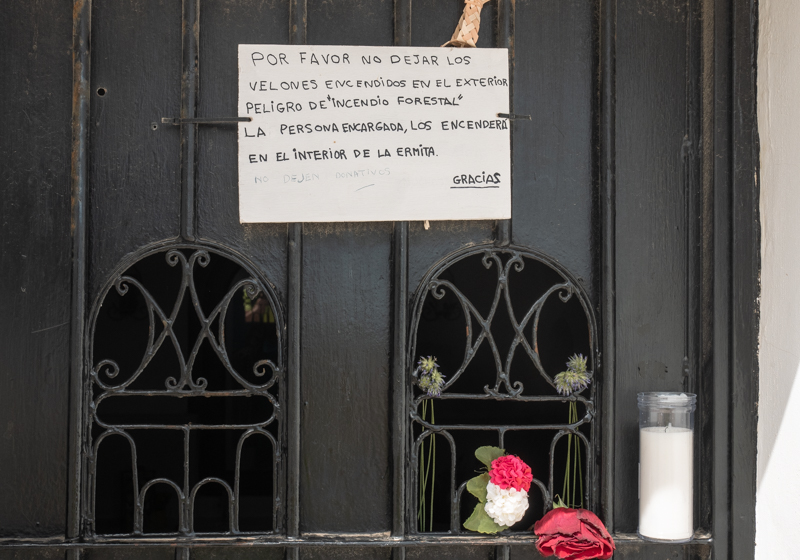 POR FAVOR NO DEJAR LOS
VELONES ENCENDIDOS EN EL EXTERIOR
PELIGRO DE "INCENDIO FORESTAL"
LA PERSONA ENCARGADA, LOS ENCENDERÁ
EN EL INTERIOR DE LA ERMITA.
NO DEJEN DONATIVOS
GRACIAS